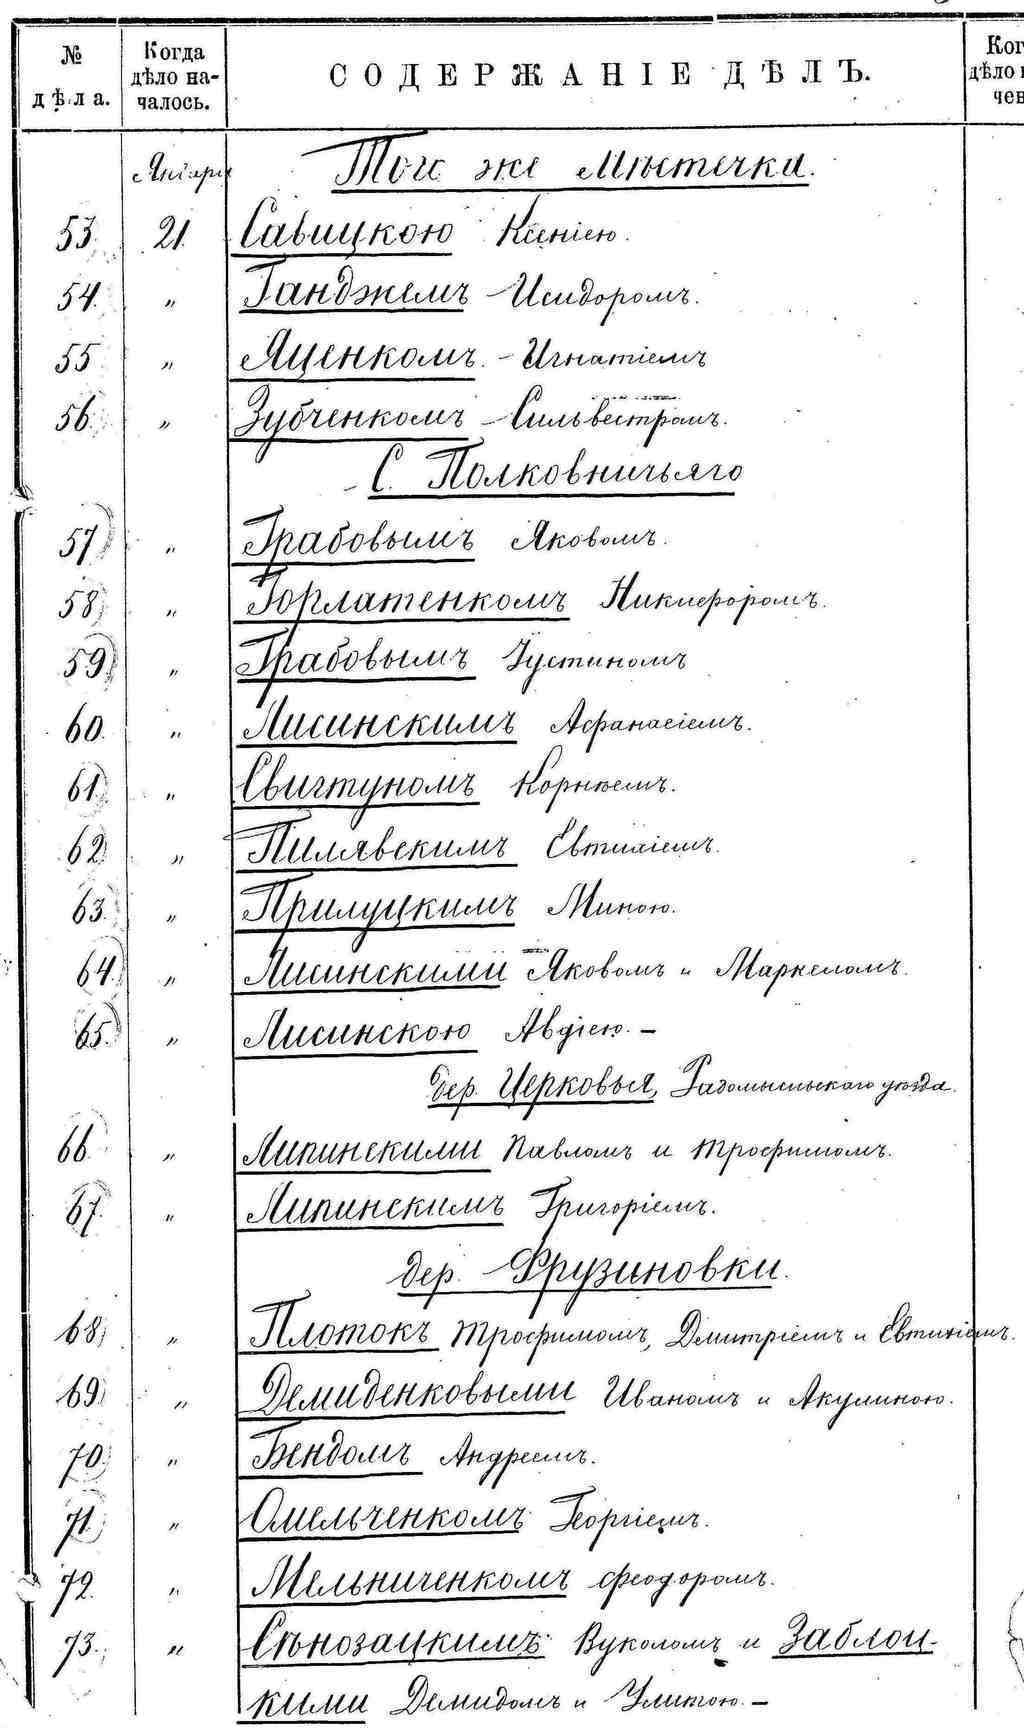 №
дѣла.
Когда
дѣло на-
чалось.
СОДЕРЖАНІЕ ДѢЛЪ.
Ког
дѣло
чен
Января Того же Мѣстечка.
53. 21. Савицкою Ксеніею.
54. " Ганджемъ Исидоромъ.
55 " Яценкомъ Игнатіемъ
56. " Зубченкомъ Сильвестромъ.
С. Полковничьяго
57 " Грабовымъ Яковомъ.
58 " Горлатенкомъ Никифоромъ.
59 " Грабовымъ Іустиномъ
60. " Лисинскимъ Афанасіемъ.
61 " Свистуномъ Корнѣемъ.
62 " Пилявскимъ Евтихіемъ.
63. " Прилуцкимъ Миною.
64. " Лисинскими Яковомъ и Маркеломъ.
65. " Лисинскою Авдіею. —
дер. Церковья, Радомысльскаго уѣзда.
66. " Липинскими Павломъ и Трофимомъ.
67. " Липинскимъ Григоріемъ.
дер. Фрузиновки.
68 " Плотокъ Трофимомъ, Димитріемъ и Евтихіемъ.
69 " Демиденковыми Иваномъ и Акулиною.
70 " Бендомъ Андреемъ.
71. " Омельченкомъ Георгіемъ.
72. " Мельниченкомъ Феодоромъ.
73. " Сѣнозацкимъ Вуколомъ и Заблоц-
кими Демидомъ и Улитою. —